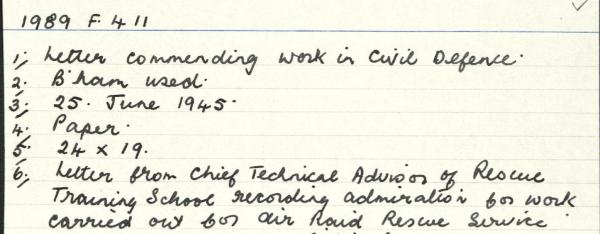 1989 F. 411
1; Letter commending work in Civil Defence.
2. B'ham used.
3; 25. June 1945.
4. Paper.
5. 24 x 19.
6; Letter from Chief Technical Advisor of Rescue
Training School recording admiration for work
carried out for Air Raid Rescue Service